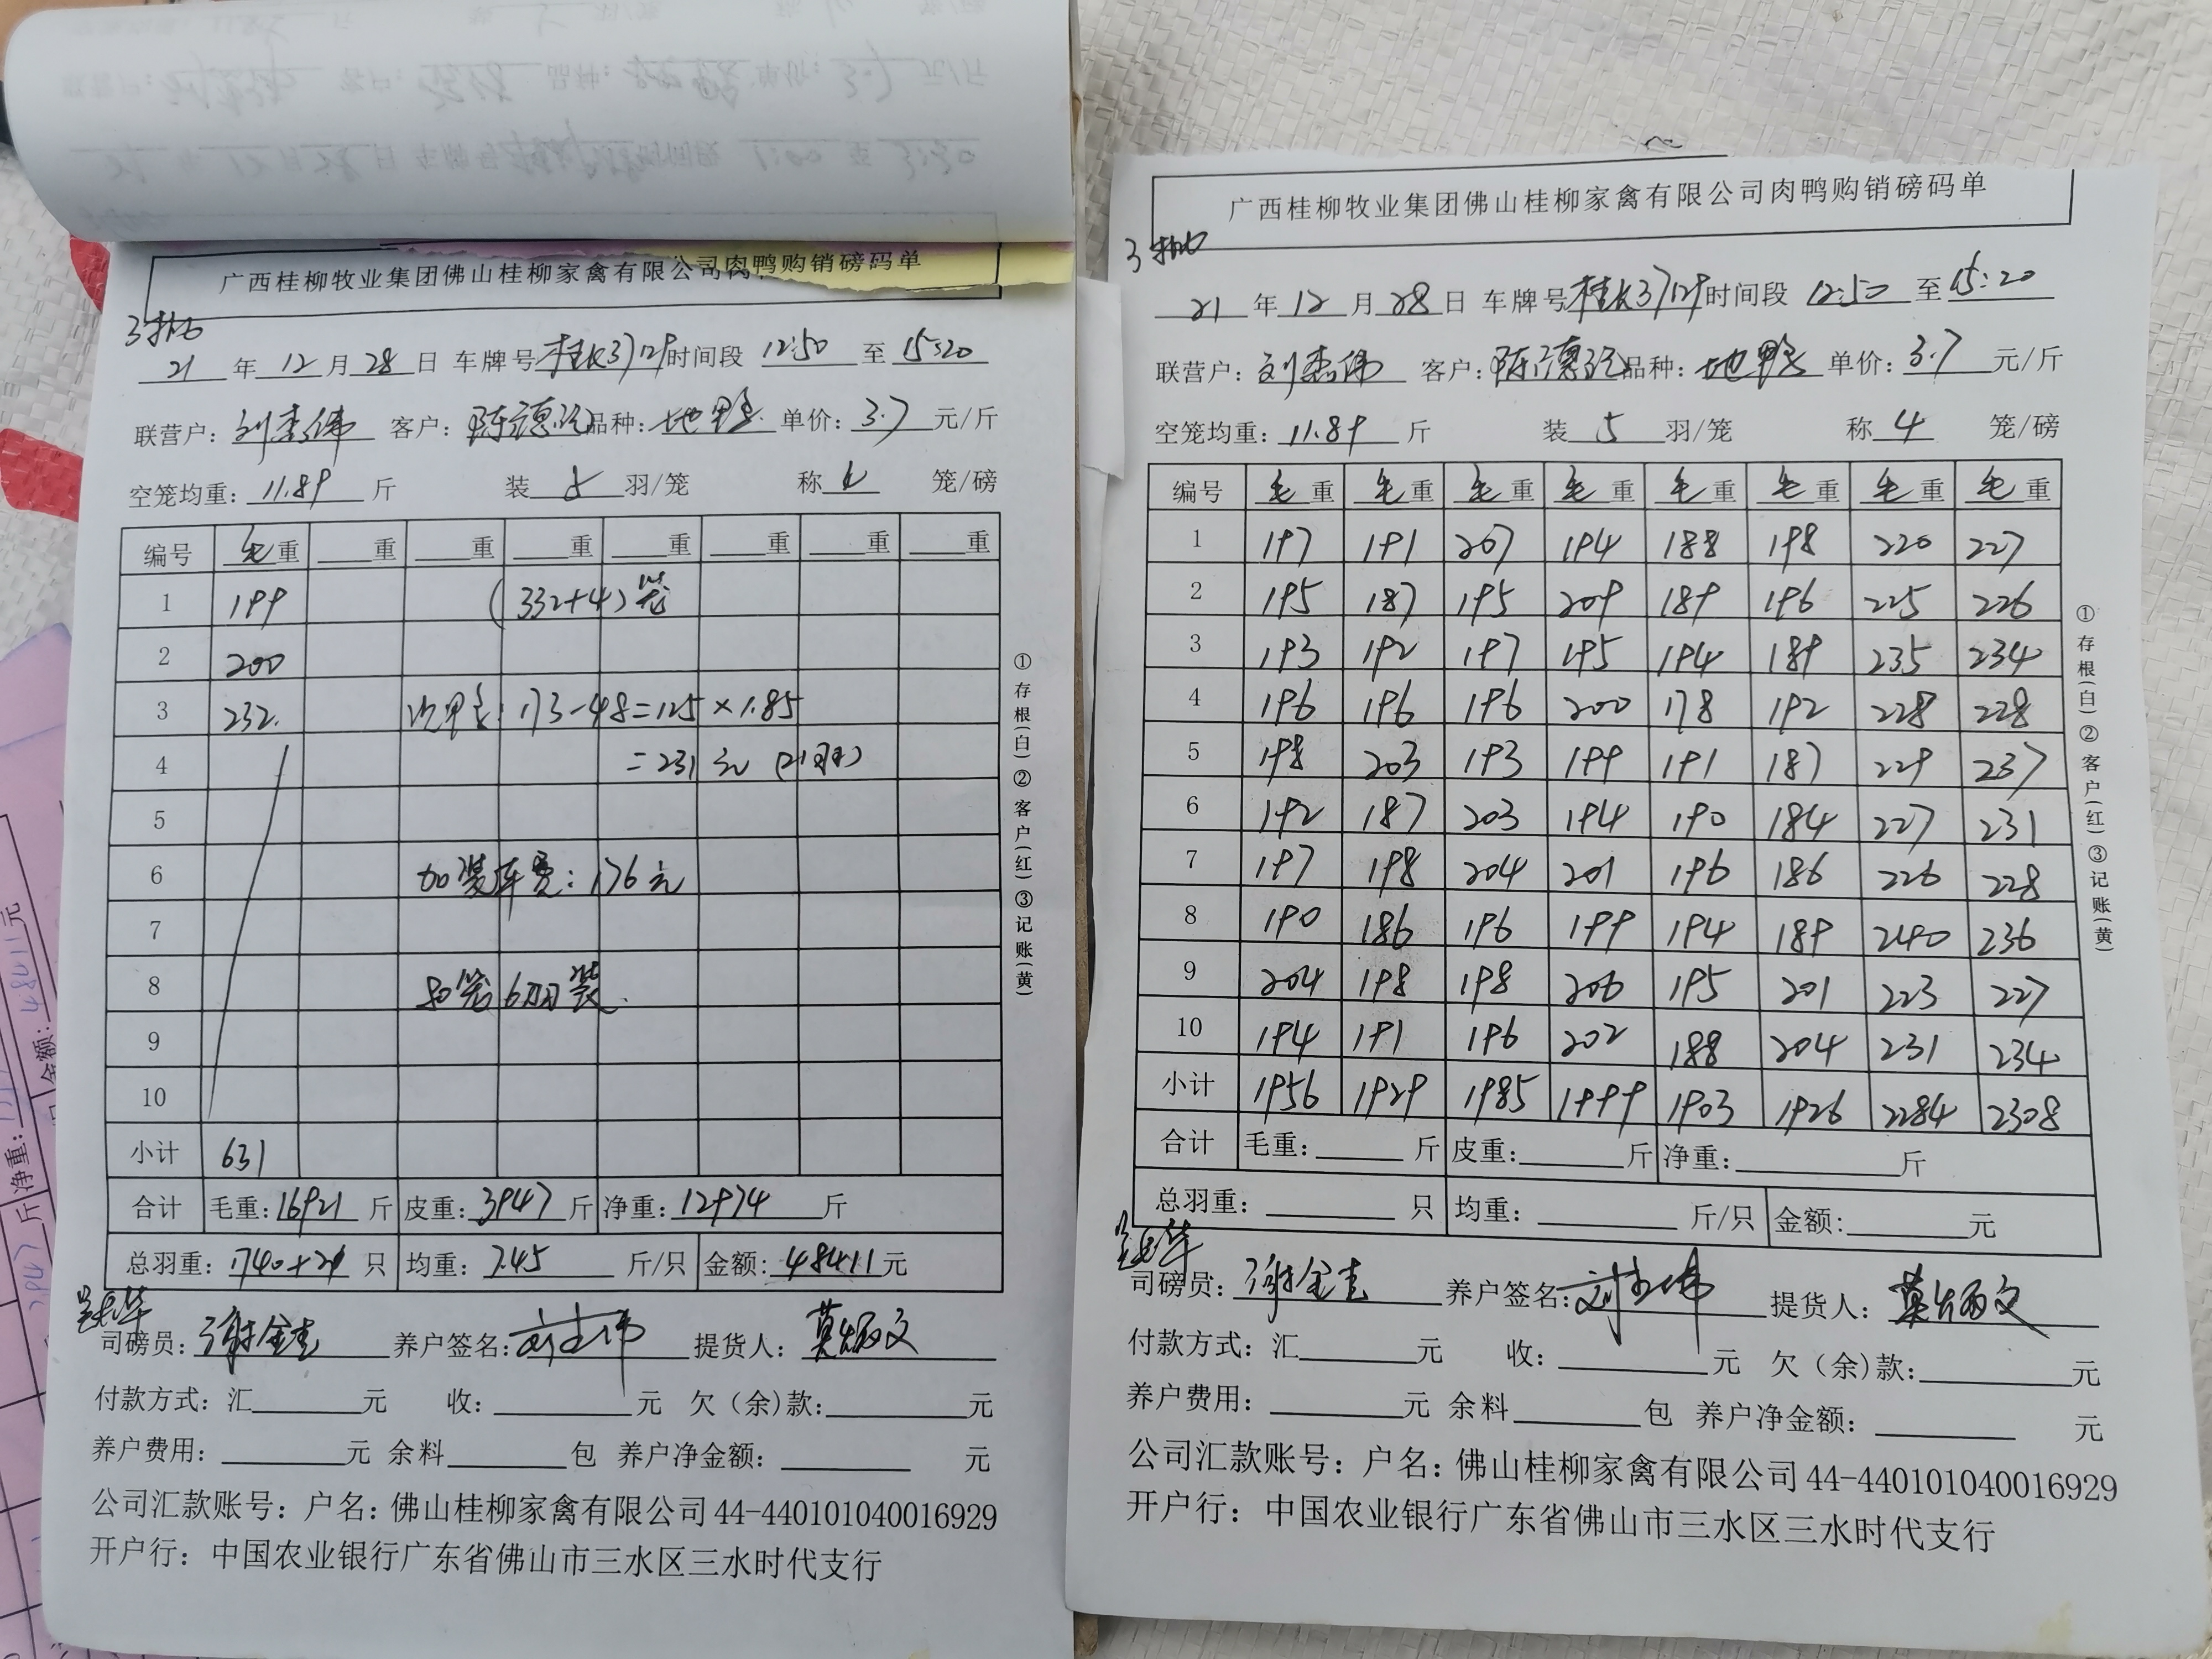 广西桂柳牧业集团佛山桂柳家禽有限公司肉鸭购销磅码单
3批
21年12月28日 车牌号桂K37129时间段 12:50至15:20
联营户:刘 伟 客户:陈德 品种:地鸭 单价:3.7元/斤
空笼均重:11.89斤 装5羽/笼 称4笼/磅
编号 毛重 重 重 重 重 重 重 重
1 199 (332+4)笼
2 200
3 232. 次鸭:173-48=125×1.85
4 =231元(21羽)
5
6 加装车费:176元
7
8 80笼6羽装.
9
10
小计 631
合计 毛重:16921斤 皮重:3947斤 净重:12974斤
总羽重:1740+21只 均重:7.45斤/只 金额:48411元
司磅员:谢金 养户签名:刘 伟 提货人:莫炳文
付款方式:汇 元 收: 元 欠(余)款: 元
养户费用: 元 余料 包 养户净金额: 元
公司汇款账号:户名:佛山桂柳家禽有限公司44-440101040016929
开户行:中国农业银行广东省佛山市三水区三水时代支行
①存根(白)②客户(红)③记账(黄)
广西桂柳牧业集团佛山桂柳家禽有限公司肉鸭购销磅码单
3批
21年12月28日 车牌号桂K37129时间段 12:50至15:20
联营户:刘 伟 客户:陈德 品种:地鸭 单价:3.7元/斤
空笼均重:11.89斤 装5羽/笼 称4笼/磅
编号 毛重 毛重 毛重 毛重 毛重 毛重 毛重 毛重
1 197 191 207 194 188 198 220 227
2 195 187 195 209 189 196 225 226
3 193 192 197 195 194 189 235 234
4 196 196 196 200 178 192 228 228
5 198 203 193 199 191 187 229 237
6 192 187 203 194 190 184 227 231
7 197 198 204 201 196 186 226 228
8 190 186 196 199 194 189 240 236
9 204 198 198 206 195 201 223 227
10 194 191 196 202 188 204 231 234
小计 1956 1929 1985 1999 1903 1926 2284 2308
合计 毛重: 斤 皮重: 斤 净重: 斤
总羽重: 只 均重: 斤/只 金额: 元
司磅员:谢金 养户签名:刘 伟 提货人:莫炳文
付款方式:汇 元 收: 元 欠(余)款: 元
养户费用: 元 余料 包 养户净金额: 元
公司汇款账号:户名:佛山桂柳家禽有限公司44-440101040016929
开户行:中国农业银行广东省佛山市三水区三水时代支行
①存根(白)②客户(红)③记账(黄)